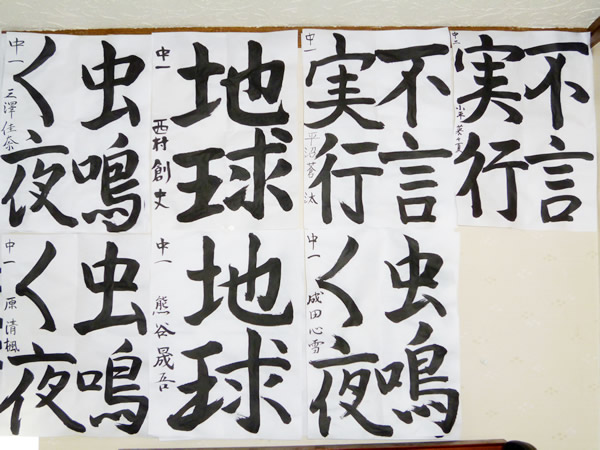 不言
実行
中二
不言
実行
中一 平沼蒼汰
地球
中一 西村創丈
虫鳴
く夜
中一 三澤佳奈
虫鳴
く夜
中一 成田心雪
地球
中一 熊谷晟吾
虫鳴
く夜
中一 原清楓